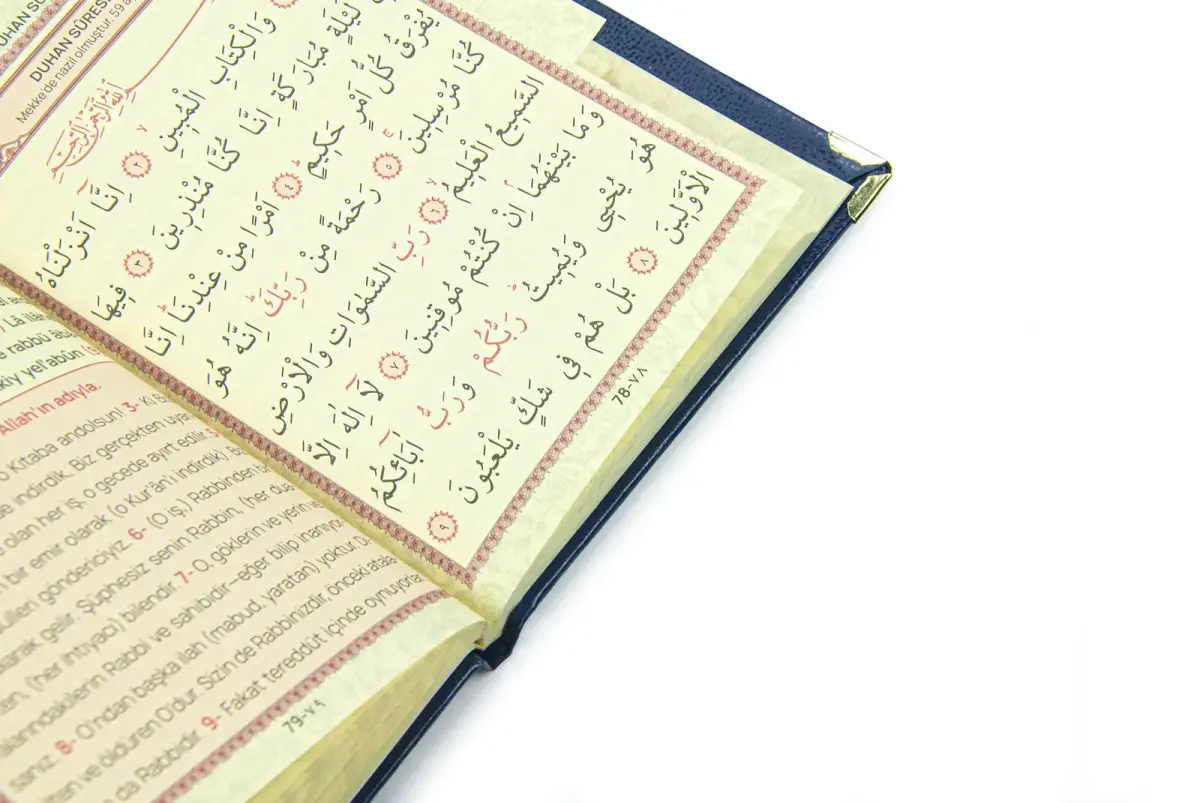 DUHAN SÛRES
Mekke'de nazil olmuştur. 59
اللّٰهِ الرَّحْمٰنِ الرَّحِيمِ
وَالْكِتَابِ الْمُبِينِ ٢ اِنَّٓا اَنْزَلْنَاهُ
لَيْلَةٍ مُبَارَكَةٍ اِنَّا كُنَّا مُنْذِرِينَ ٣ فِيهَا
يُفْرَقُ كُلُّ اَمْرٍ حَكِيمٍ ٤ اَمْرًا مِنْ عِنْدِنَا اِنَّا
كُنَّا مُرْسِلِينَ ٥ رَحْمَةً مِنْ رَبِّكَ اِنَّهُ هُوَ
السَّمِيعُ الْعَلِيمُ ٦ رَبِّ السَّمٰوَاتِ وَالْاَرْضِ
وَمَا بَيْنَهُمَا اِنْ كُنْتُمْ مُوقِنِينَ ٧ لَٓا اِلٰهَ اِلَّا
هُوَ يُحْيٖى وَيُمِيتُ رَبُّكُمْ وَرَبُّ اٰبَٓائِكُمُ
الْاَوَّلِينَ ٨ بَلْ هُمْ فٖى شَكٍّ يَلْعَبُونَ ٩
78-٧٨
Lâ ilâ
rabbü
yel'abûn
Allah'ın adıyla.
o Kitaba andolsun! 3-
indirdik. Biz gerçekten
olan her iş, o gecede ayırt edilir.
bir emir olarak (o Kur'ân'ı indirdik).
göndericiyiz. 6- (O iş,) Rabbinden
olarak gelir. Şüphesiz senin Rabbin, (her
(her ihtiyacı) bilendir. 7- O, göklerin ve yerin ve
Rabbi ve sahibidir—eğer bilip
8- O'ndan başka ilah (mabud, yaratan) yoktur.
ve öldüren O'dur. Sizin de Rabbinizdir, önceki
da Rabbidir. 9- Fakat tereddüt içinde
79-٧٩